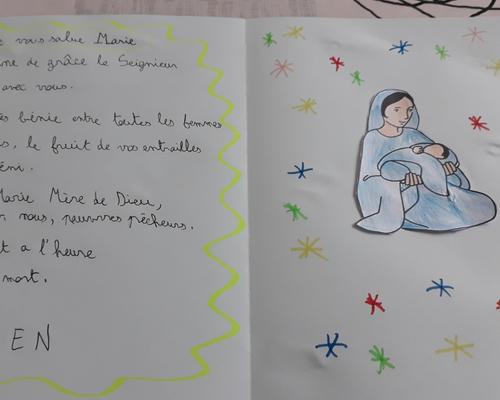 vous salue Marie
de grâce le Seigneur
avec vous.
bénie entre toutes les femmes
le fruit de vos entrailles
Marie Mère de Dieu,
nous, pauvres pêcheurs.
t a l'heure
mort.
EN